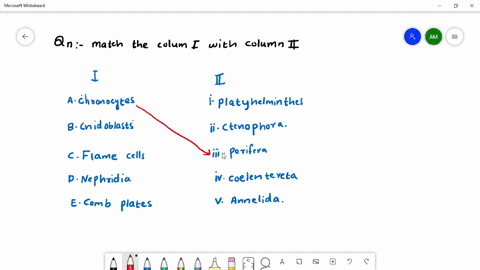 Microsoft Whiteboard
AM
Qn:- match the colum I with column II
I II
A. Chronocytes i. Platyhelminthes
B. Cnidoblasts ii. Ctenophora.
C. Flame cells iii. Porifera
D. Nephridia iv. Coelentereta
E. Comb plates v. Annelida.
A